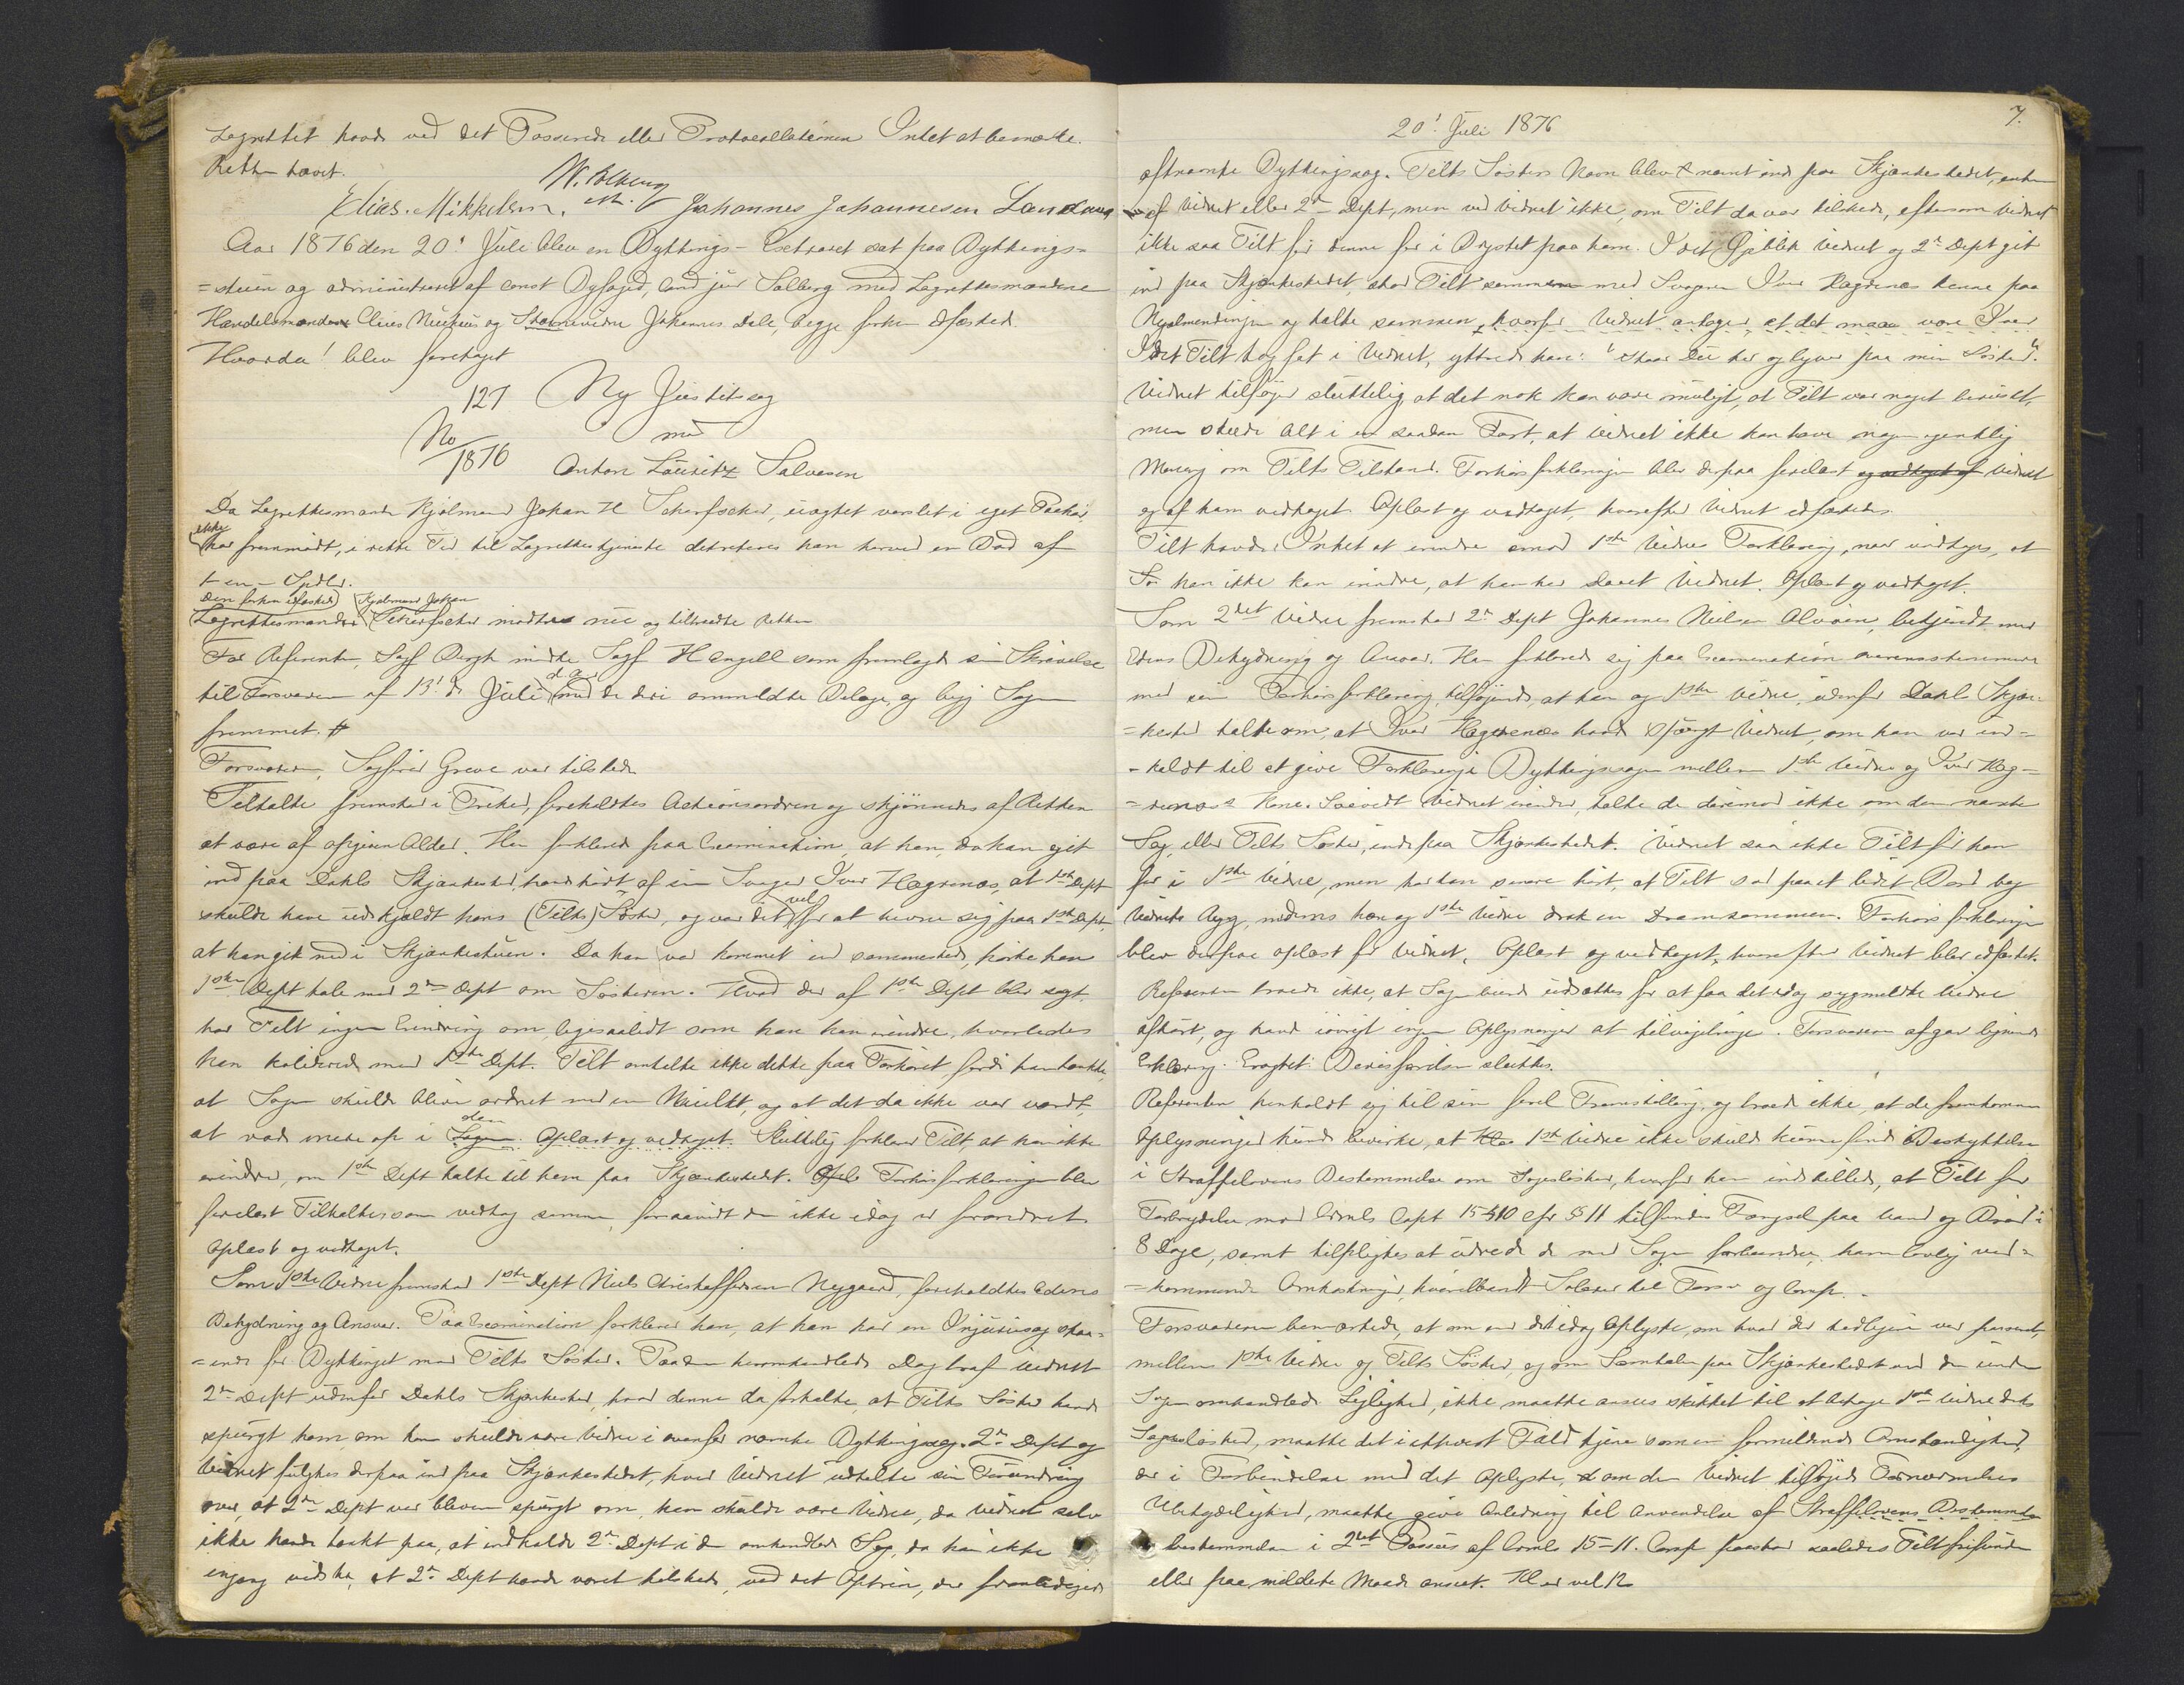 Lagrettet havde ved det Passerede eller Protocollationen Intet at bemærke.
Retten hævet.
Elias Mikkelsen. Johannes Johannesen
Aar 1876 den 20' Juli blev en Bythings-Extraret sat paa Bythings-
=stuen og administreret af const Byfoged, cand jur Solberg med Lagrettesmændene
Handelsmændene og Johannes Dale, begge forhen edfæsted.
Hvorda! blev foretaget
127 Ny Justitssag
No/1876 mod
Anton Lauritz Salvesen
Da Lagrettesmand Hjelmand Johan H uagtet varslet i eget Paahør,
ikke
har fremmødt, i rette Tid til Lagrettestjeneste dekreteres han herved en Bod af
1 en - Spdlr.
Den forhen edfæsted Hjelmand Johan
Lagrettesmanden mødte nu og tiltraadte Retten
For Referenten, Sagf Bergh mødte Sagf H Engell som fremlagde sin Skrivelse
til Forsvareren af 13' d Juli med de deri ommeldte Bilage, og begj Sagen
fremmet.
Forsvareren, Sagfører Greve var tilstede.
Tiltalte fremstod i Frihed, foreholdtes Actionsordren og skjønnedes af Retten
at være af opgiven Alder. Han forklared paa Examination, at han, da han gik
ind paa Dahls Skjænkested, havde hørt af sin Svoger Iver Hægrenæs, at 1ste Dept
vel
skulde have udskjældt hans (Tilts) Søster, og var det for at hevne sig paa 1ste Dept,
at han gik ned i Skjænkestuen. Da han var kommet ind sammesteds, hørte han
1ste Dept tale med 2den Dept om Søsteren. Hvad der af 1ste Dept blev sagt,
har Tilt ingen Erindring om, ligesaalidt som han kan erindre, hvorledes
han kolliderede med 1ste Dept. Tilt omtalte ikke dette paa Forhøret, fordi han tænkte,
at Sagen skulde blive ordnet med en Mulkt, og at det da ikke var værdt,
den
at rode mere op i Sagen. Oplæst og vedtaget. Sluttelig forklarer Tilt, at han ikke
erindrer, om 1ste Dept talte til ham paa Skjænkestedet. Forhørsforklaringen blev
forelæst Tiltalte, som vedtog samme, forsaavidt den ikke idag er forandret.
Oplæst og vedtaget.
Som 1ste Vidne fremstod 1ste Dept Niels Christoffersen Nygaard, foreholdtes Edens
Betydning og Ansvar. Paa Examination forklarer han, at han har en Injuriesag staa-
=ende for Bythinget mod Tilts Søster. Paa den heromhandlede Dag traf Vidnet
2den Dept udenfor Dahls Skjænkested, hvor denne da fortalte, at Tilts Søster havde
spurgt ham om han skulde være Vidne i ovenfor nævnte Bythingssag. 2den Dept og
Vidnet fulgtes derpaa ind paa Skjænkestedet, hvor Vidnet udtalte sin Forundring
over, at 2den Dept var bleven spurgt om, han skulde være Vidne, da Vidnet selv
ikke havde tænkt paa, at indkalde 2den Dept i den omhandlede Sag, da han ikke
engang vidste, at 2den Dept havde været tilstede, ved det Optrin, der foranledigede
7.
20! Juli 1876
oftnævnte Bythingssag. Tilts Søsters Navn blev nævnt inde paa Skjænkestedet, enten
af Vidnet eller 2den Dept, men ved Vidnet ikke, om Tilt da var tilstede, eftersom Vidnet
ikke saa Tilt før denne for i Brystet paa ham. I det Øjeblik Vidnet og 2den Dept gik
ind paa Skjænkestedet, stod Tilt sammen med Svogeren Iver Hægrenæs henne paa
Nyalmendingen og talte sammen, hvorfor Vidnet antager, at det maa være Iver
Idet Tilt tog fat i Vidnet, yttrede han: "Staar Du her og lyver paa min Søster".
Vidnet tilføjer sluttelig, at det nok kan være muligt, at Tilt var noget beruset,
men skede Alt i en saadan Fart, at Vidnet ikke kan have nogen egentlig
Mening om Tilts Tilstand. Forhørsforklaringen blev derpaa forelæst og vedtaget af Vidnet
og af ham vedtaget. Oplæst og vedtaget, hvorefter Vidnet edfæstedes.
Tilt havde Intet at erindre imod 1ste Vidnes Forklaring, naar undtages, at
han ikke kan erindre, at han har Vidnet. Oplæst og vedtaget.
Som 2det Vidne fremstod 2den Dept Johannes Nielsen Alvøen, bekjendt med
Edens Betydning og Ansvar. Han forklared sig paa Examination overensstemmende
med sin Forhørsforklaring, tilføjende, at han og 1ste Vidne, udenfor Dahls Skjæn-
=kested talte om, at Iver Hægrenæs havde spurgt Vidnet, om han var ind-
=kaldt til at give Forklaring i Bythingssagen mellem 1ste Vidne og Iver Hæg-
=renæs's Kone. Saavidt Vidnet erindrer, talte de derimod ikke om den nævnte
Sag, eller Tilts Søster, inde paa Skjænkestedet. Vidnet saa ikke Tilt før han
for i 1ste Vidne, men har han senere hørt, at Tilt sad paa et lidet Bord bag
Vidnets Ryg, medens han og 1ste Vidne drak en Dram sammen. Forhørsforklaringen
blev derpaa oplæst for Vidnet. Oplæst og vedtaget, hvorefter Vidnet blev edfæstet.
Referenten troede ikke, at Sagen burde udsættes for at faa det idag sygmeldte Vidne
afhørt, og havde iøvrigt ingen Oplysninger at tilvejebringe. Forsvareren afgav lignende
Erklæring. Eragtet: Bevisførelsen sluttes.
Referenten henholdt sig til sin forel Fremstilling, og troede ikke, at de fremkomne
Oplysninger kunde bevirke, at 1ste Vidne ikke skulde kunne finde Beskyttelse
i Straffelovens Bestemmelse om Sagesløshed, hvorfor han indstillede, at Tilt for
Forbrydelse mod Crmls Capt 15 §10 cfr §11 tilfindes Fængsel paa Vand og Brød i
8 Dage, samt tilpligtes at udrede de med Sagen forbundne, ham lovlig ved-
=kommende Omkostninger, hvoriblandt Salærer til Forsv og
Forsvareren bemærkede, at om end det idag Oplyste, om hvad der tidligere var passeret,
mellem 1ste Vidne og Tilts Søster, og om Samtalen paa Skjænkestedet ved den under
Sagen omhandlede Lejlighed, ikke maatte ansees skikket til at betage 1ste Vidne dets
Sagesløshed, maatte det i ethvert Fald tjene som en formildende Omstændighed,
der i Forbindelse med det Oplyste, om den Vidnet tilføjede Fornærmelses
Ubetydelighed, maatte give Anledning til Anvendelse af Straffelovens Bestemmelse
bestemmelsen i 2det Passus af Crmls 15-11. paastod saaledes Tilt frifunden
eller paa mildeste Maade anseet. Kl er vel 12